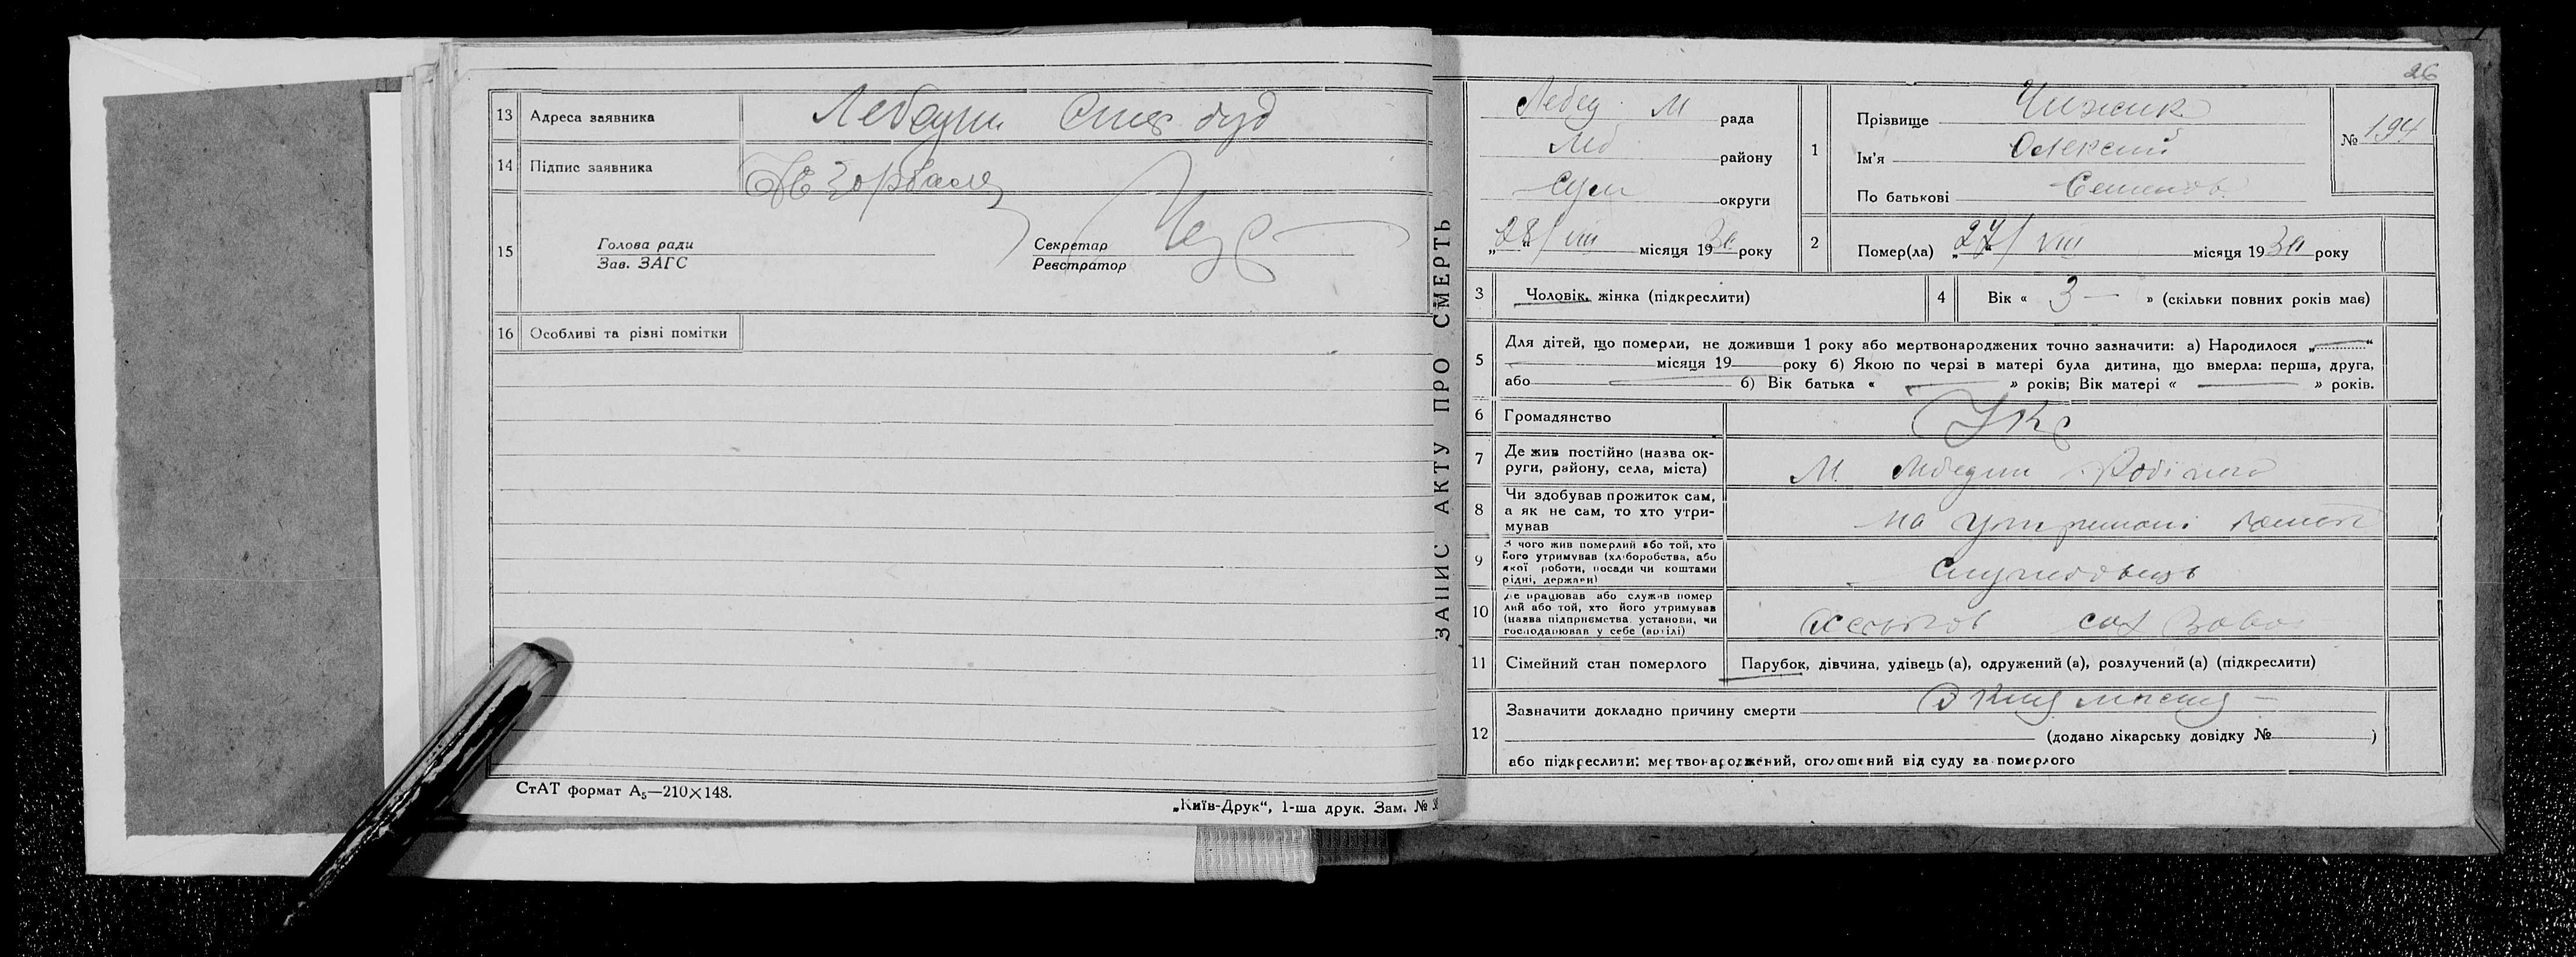 13 Адреса заявника Лебедин
14 Підпис заявника
15 Голова ради
Зав. ЗАГС
Секретар
Реєстратор
16 Особливі та різні помітки
СтАТ формат А5—210×148.
„Київ-Друк“, 1-ша друк. Зам. №
ЗАПИС АКТУ ПРО СМЕРТЬ
26
Лебед. М рада
Леб району
Сум округи
„28/VIII місяця 1930 року
1 Прізвище Чижик
Ім'я Олексий
По батькові Семенов
№ 194
2 Помер(ла) „27/VIII місяця 1930 року
3 Чоловік, жінка (підкреслити)
4 Вік « 3 — » (скільки повних років має)
5 Для дітей, що померли, не доживши 1 року або мертвонароджених точно зазначити: а) Народилося „ “
місяця 19 року б) Якою по черзі в матері була дитина, що вмерла: перша, друга,
або б) Вік батька « » років; Вік матері « » років.
6 Громадянство Укр
7 Де жив постійно (назва ок-
руги, району, села, міста) М. Лебедин
8 Чи здобував прожиток сам,
а як не сам, то хто утри-
мував на утримані
9 З чого жив померлий або той, хто
його утримував (хліборобства, або
якої роботи, посади чи коштами
рідні, держави) службовець
10 Де працював або служив помер
лий або той, хто його утримував
(назва підприємства установи, чи
господарював у себе (артілі) сах
11 Сімейний стан померлого Парубок, дівчина, удівець (а), одружений (а), розлучений (а) (підкреслити)
12 Зазначити докладно причину смерти
(додано лікарську довідку № )
або підкреслити: мертвонароджений, оголошений від суду за померлого